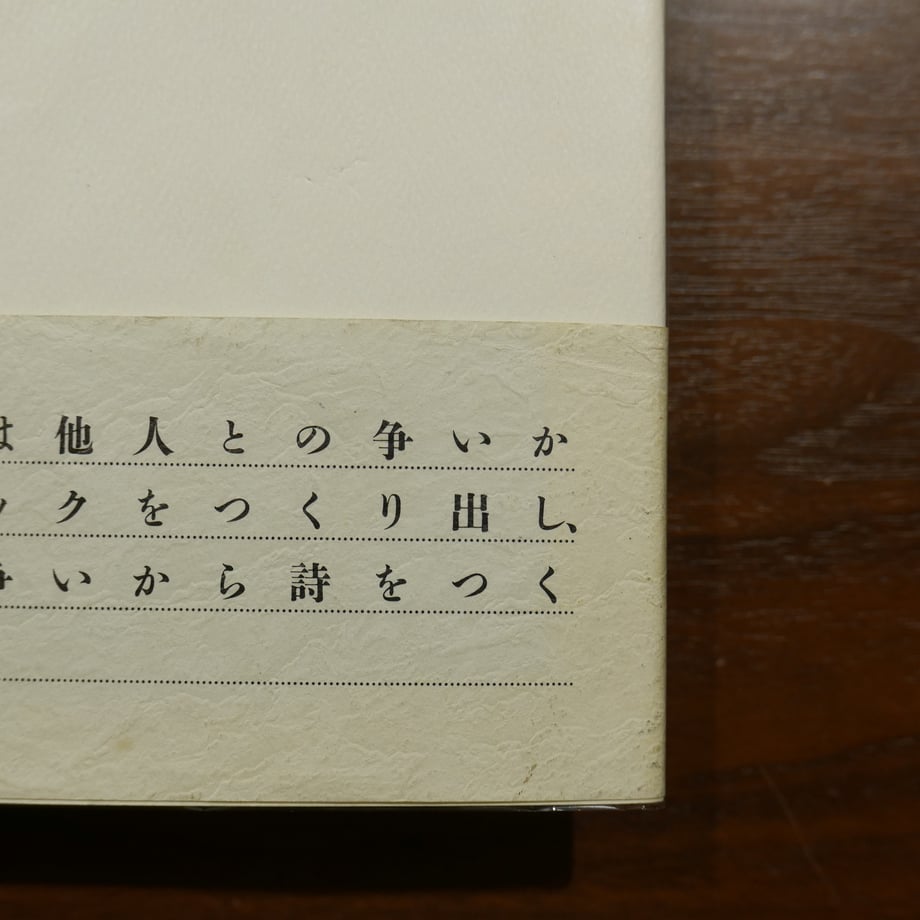 は他人との争いか
クをつくり出し、
いから詩をつく